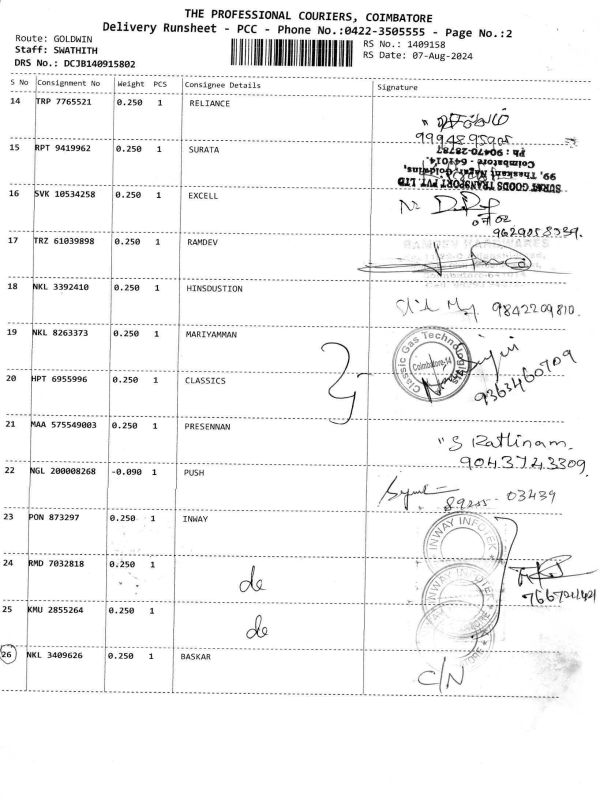 THE PROFESSIONAL COURIERS, COIMBATORE
Delivery Runsheet - PCC - Phone No.:0422-3505555 - Page No.:2
Route: GOLDWIN
RS No.: 1409158
Staff: SWATHITH
RS Date: 07-Aug-2024
DRS No.: DCJB140915802
S No Consignment No Weight PCS Consignee Details Signature
14 TRP 7765521 0.250 1 RELIANCE
9994895905
15 RPT 9419962 0.250 1 SURATA
SURAT GOODS TRANSPORT PVT. LTD
99, Thaskant Nagar, Goldwins,
Coimbatore - 641014.
Ph : 90470-28787
16 SVK 10534258 0.250 1 EXCELL
9629058339.
17 TRZ 61039898 0.250 1 RAMDEV
18 NKL 3392410 0.250 1 HINSDUSTION
9842209810.
19 NKL 8263373 0.250 1 MARIYAMMAN
Classic Gas Technologies
Coimbatore-14
20 HPT 6955996 0.250 1 CLASSICS
9363460709
21 MAA 575549003 0.250 1 PRESENNAN
"S Ratlinam.
904 374 3309.
22 NGL 200008268 -0.090 1 PUSH
89255 - 03439
23 PON 873297 0.250 1 INWAY
INWAY INFOTEK
24 RMD 7032818 0.250 1
de
INWAY INFOTEK
25 KMU 2855264 0.250 1
de
26 NKL 3409626 0.250 1 BASKAR
C/N